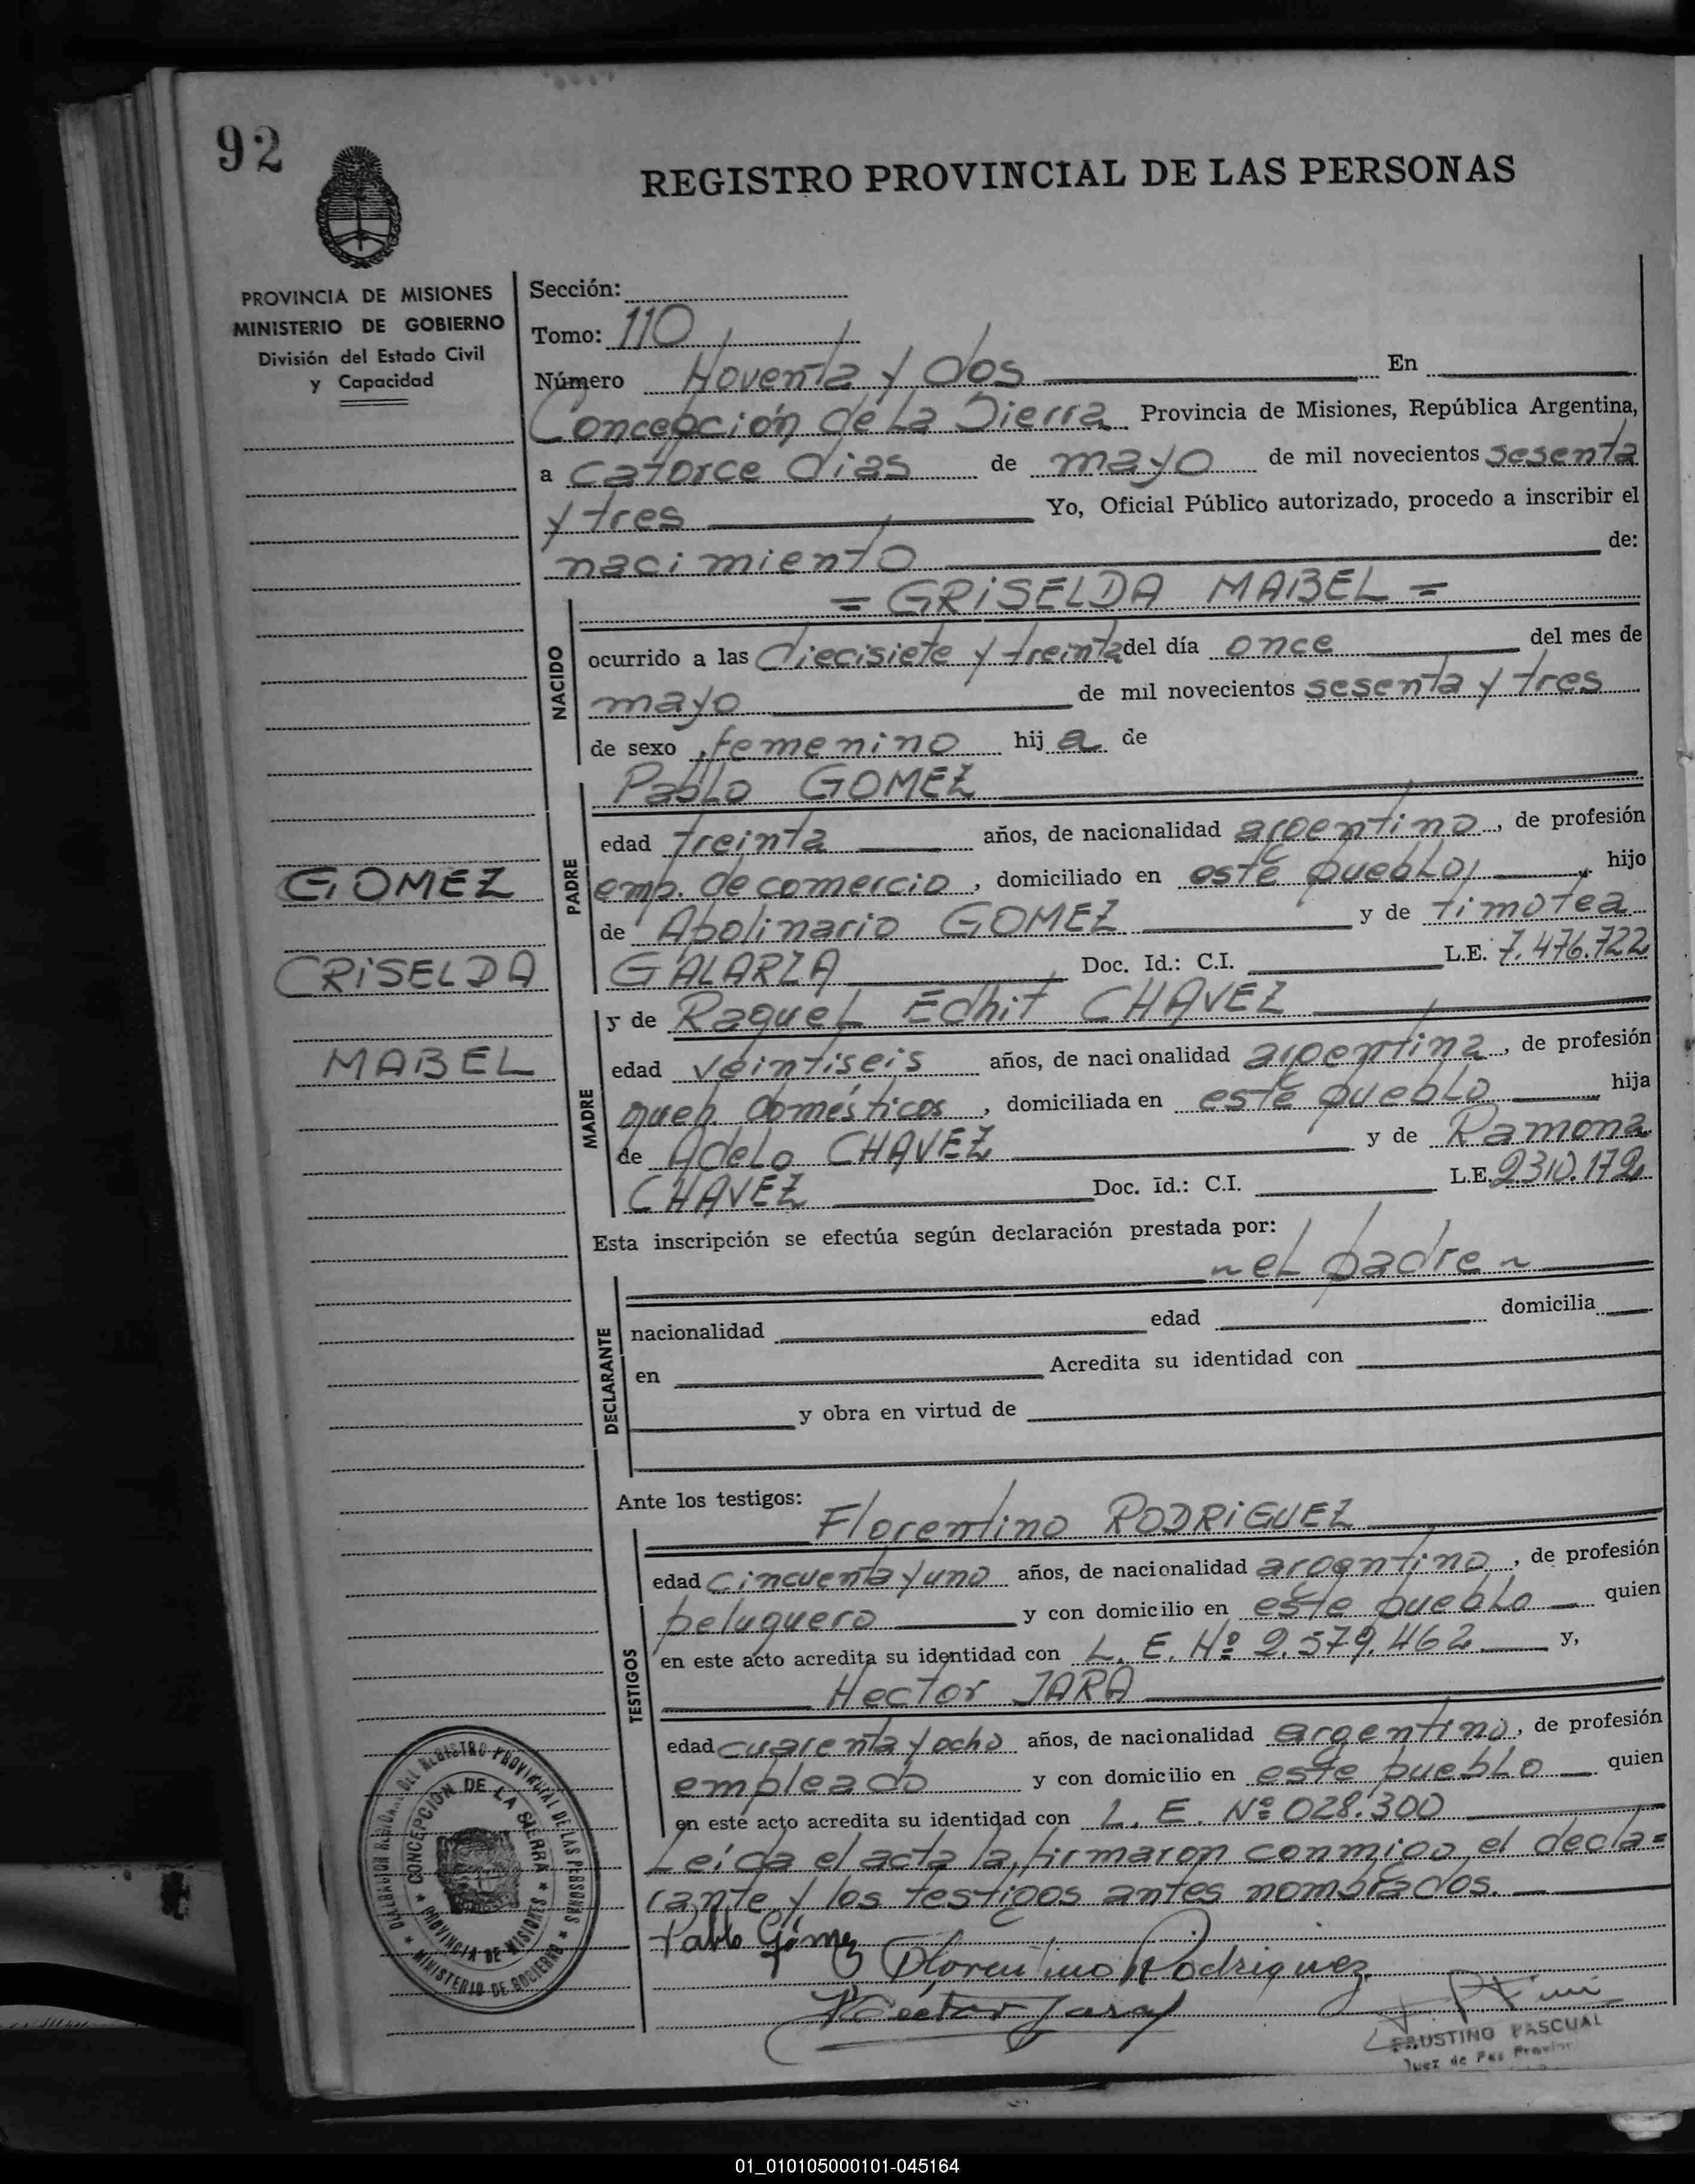 92
REGISTRO PROVINCIAL DE LAS PERSONAS
PROVINCIA DE MISIONES
MINISTERIO DE GOBIERNO
División del Estado Civil
y Capacidad
Sección:
Tomo: 110
Número Noventa y dos En
Concepción de La Sierra Provincia de Misiones, República Argentina,
a catorce dias de mayo de mil novecientos sesenta
y tres Yo, Oficial Público autorizado, procedo a inscribir el
nacimiento de:
= GRiSELDA MABEL =
NACIDO
ocurrido a las diecisiete y treinta del día once del mes de
mayo de mil novecientos sesenta y tres
de sexo femenino hij a de
Pablo GOMEZ
PADRE
edad treinta años, de nacionalidad argentino, de profesión
emp. de comercio, domiciliado en este pueblo, hijo
de Apolinario GOMEZ y de timotea
GALARZA Doc. Id.: C.I. L.E. 7.476.722
GOMEZ
GRiSELDA
MABEL
MADRE
y de Raquel Edhit CHAVEZ
edad veintiseis años, de nacionalidad argentina, de profesión
queh. domésticos, domiciliada en este pueblo hija
de Adelo CHAVEZ y de Ramona
CHAVEZ Doc. Id.: C.I. L.E. 2310.172
Esta inscripción se efectúa según declaración prestada por:
~ el padre ~
DECLARANTE
nacionalidad edad domicilia
en Acredita su identidad con
y obra en virtud de
Ante los testigos:
Florentino RODRiGUEZ
TESTIGOS
edad cincuenta y uno años, de nacionalidad argentino, de profesión
peluquero y con domicilio en este pueblo quien
en este acto acredita su identidad con L. E. Nº 2.579.462 y,
Hector JARA
edad cuarenta y ocho años, de nacionalidad argentino, de profesión
empleado y con domicilio en este pueblo quien
en este acto acredita su identidad con L. E. Nº 028.300
Leída el acta la firmaron conmigo el decla=
rante y los testigos antes nombrados.
Pablo Gómez
Florentino Rodriguez
Héctor Jara
FAUSTINO PASCUAL
Juez de Paz
DEL REGISTRO PROVINCIAL DE LAS PERSONAS
MINISTERIO DE GOBIERNO
CONCEPCION DE LA SIERRA
PROVINCIA DE MISIONES
01_010105000101-045164